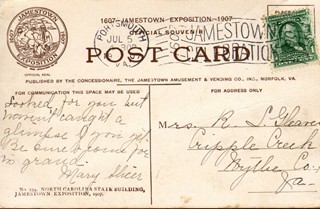 JAMESTOWN EXPOSITION
1607
1907
OFFICIAL SEAL
1607—JAMESTOWN EXPOSITION—1907
OFFICIAL SOUVENIR
POST CARD
PORTSMOUTH
JUL 5
VA.
JAMESTOWN
PUBLISHED BY THE CONCESSIONAIRE, THE JAMESTOWN AMUSEMENT & VENDING CO., INC., NORFOLK, VA.
FOR COMMUNICATION THIS SPACE MAY BE USED
FOR ADDRESS ONLY
Looked for you but
haven't caught a
glimpse of you yet
Be sure & come for
is grand.
Mary
Mrs. R. S.
Cripple Creek
Wythe Co.,
Va.
No. 124. NORTH CAROLINA STATE BUILDING,
JAMESTOWN EXPOSITION, 1907.